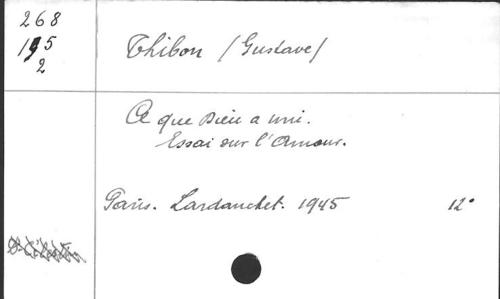 268
195
2
Thibon /Gustave/
Ce que Dieu a uni.
Essai sur l'Amour.
Paris. Lardanchet. 1945 12°